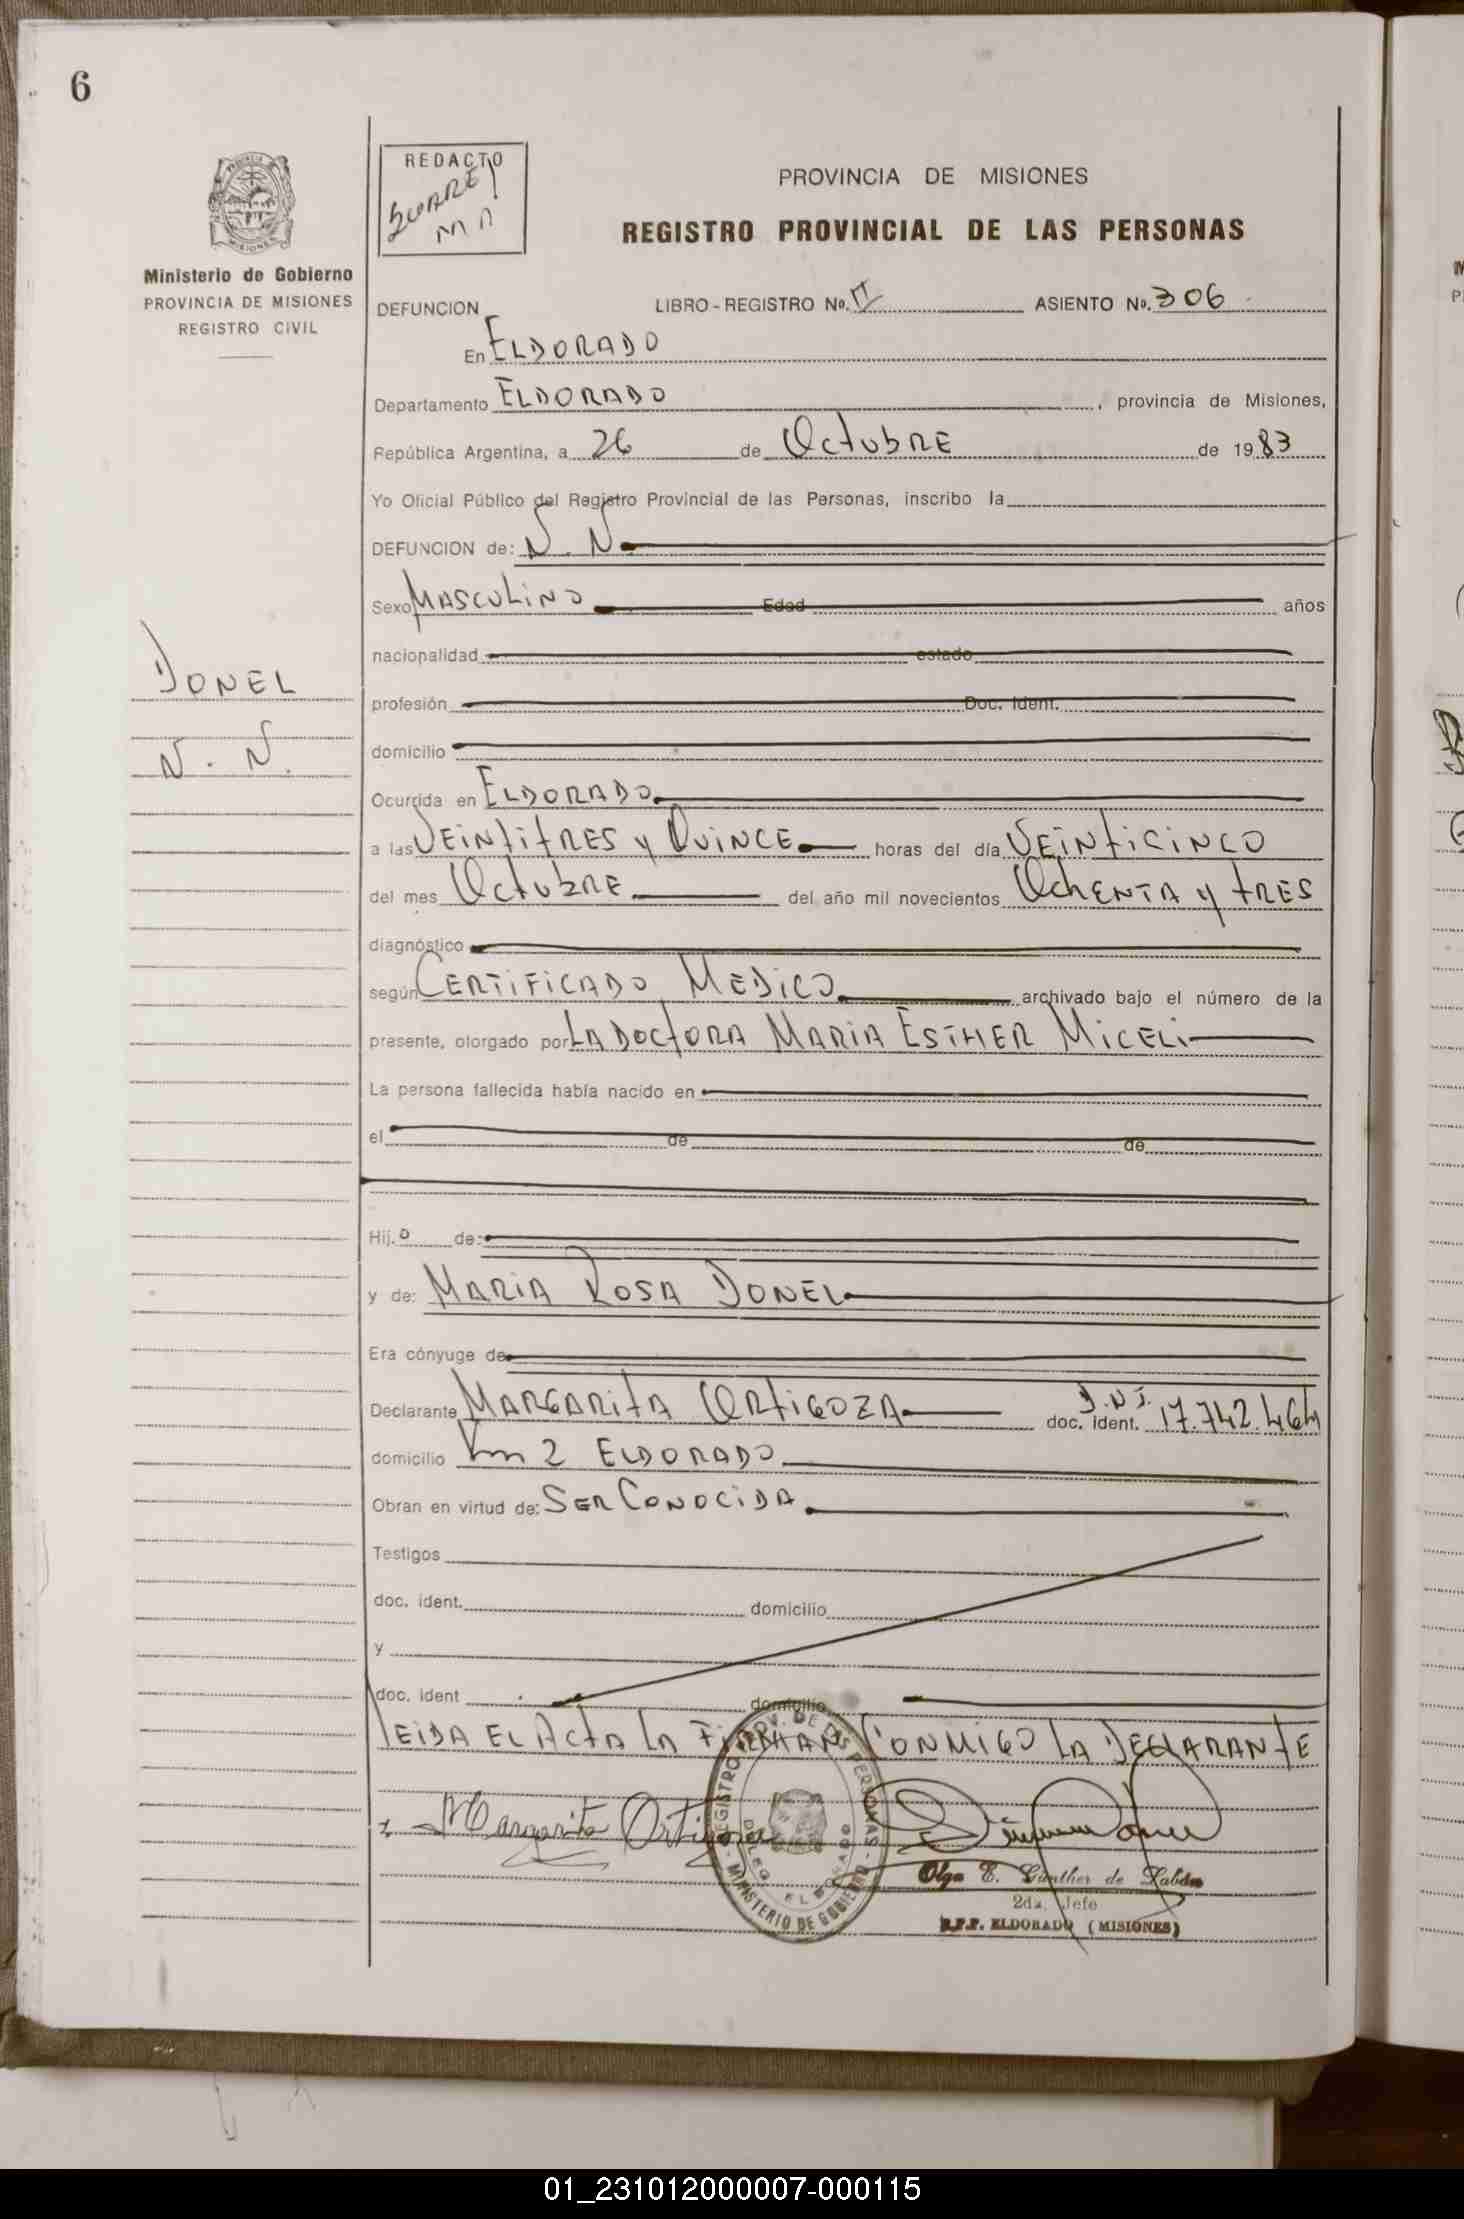 6
MISIONES
Ministerio de Gobierno
PROVINCIA DE MISIONES
REGISTRO CIVIL
REDACTO
SUAREZ
PROVINCIA DE MISIONES
REGISTRO PROVINCIAL DE LAS PERSONAS
DEFUNCION LIBRO-REGISTRO No. II ASIENTO No. 306
En ELDORADO
Departamento ELDORADO, provincia de Misiones,
República Argentina, a 26 de Octubre de 1983
Yo Oficial Público del Registro Provincial de las Personas, inscribo la
DEFUNCION de: N. N.
Sexo MASCULINO Edad años
nacionalidad estado
DONEL
profesión Doc. Ident.
N. N.
domicilio
Ocurrida en ELDORADO
a las VEINTITRES y QUINCE horas del día VEINTICINCO
del mes Octubre del año mil novecientos OCHENTA y TRES
diagnóstico
según CERTIFICADO MEDICO archivado bajo el número de la
presente, otorgado por LA DOCTORA MARIA ESTHER MICELI
La persona fallecida había nacido en
el de de
Hij.o de:
y de: MARIA ROSA DONEL
Era cónyuge de
Declarante MARGARITA ORTIGOZA doc. ident. D.N.I. 17.742.464
domicilio Km 2 ELDORADO
Obran en virtud de: SER CONOCIDA
Testigos
doc. ident. domicilio
y
doc. ident domicilio
LEIDA EL ACTA LA FIRMAN CONMIGO LA DECLARANTE
Margarita Ortigoza
REGISTRO PROV. DE LAS PERSONAS - MINISTERIO DE GOBIERNO -
DELEG. ELDORADO
Olga E. Günther de
2da. Jefe
R.P.P. ELDORADO (MISIONES)
01_231012000007-000115